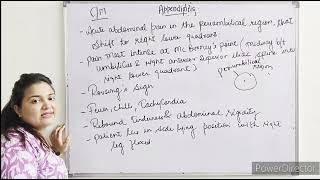 C/M Appendicitis
- Acute abdominal pain in the periumbilical region, that
shift to right lower quadrant.
- Pain most intense at Mc Burney's point (midway b/t
umbilicus & right anterior superior iliac spine into
right lower quadrant)
periumbilical
region
- Rovsing's sign
- Fever, chills, Tachycardia
- Rebound Tenderness, abdominal rigidity
- Patient lies in side lying position with right
leg flexed
PowerDirector